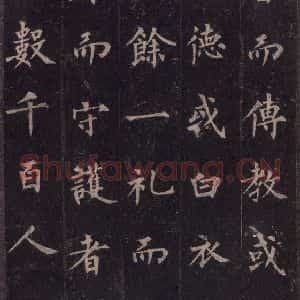 而傳教或
德或白衣
餘一礼而
而守護者
數千百人
Shufawang.CN